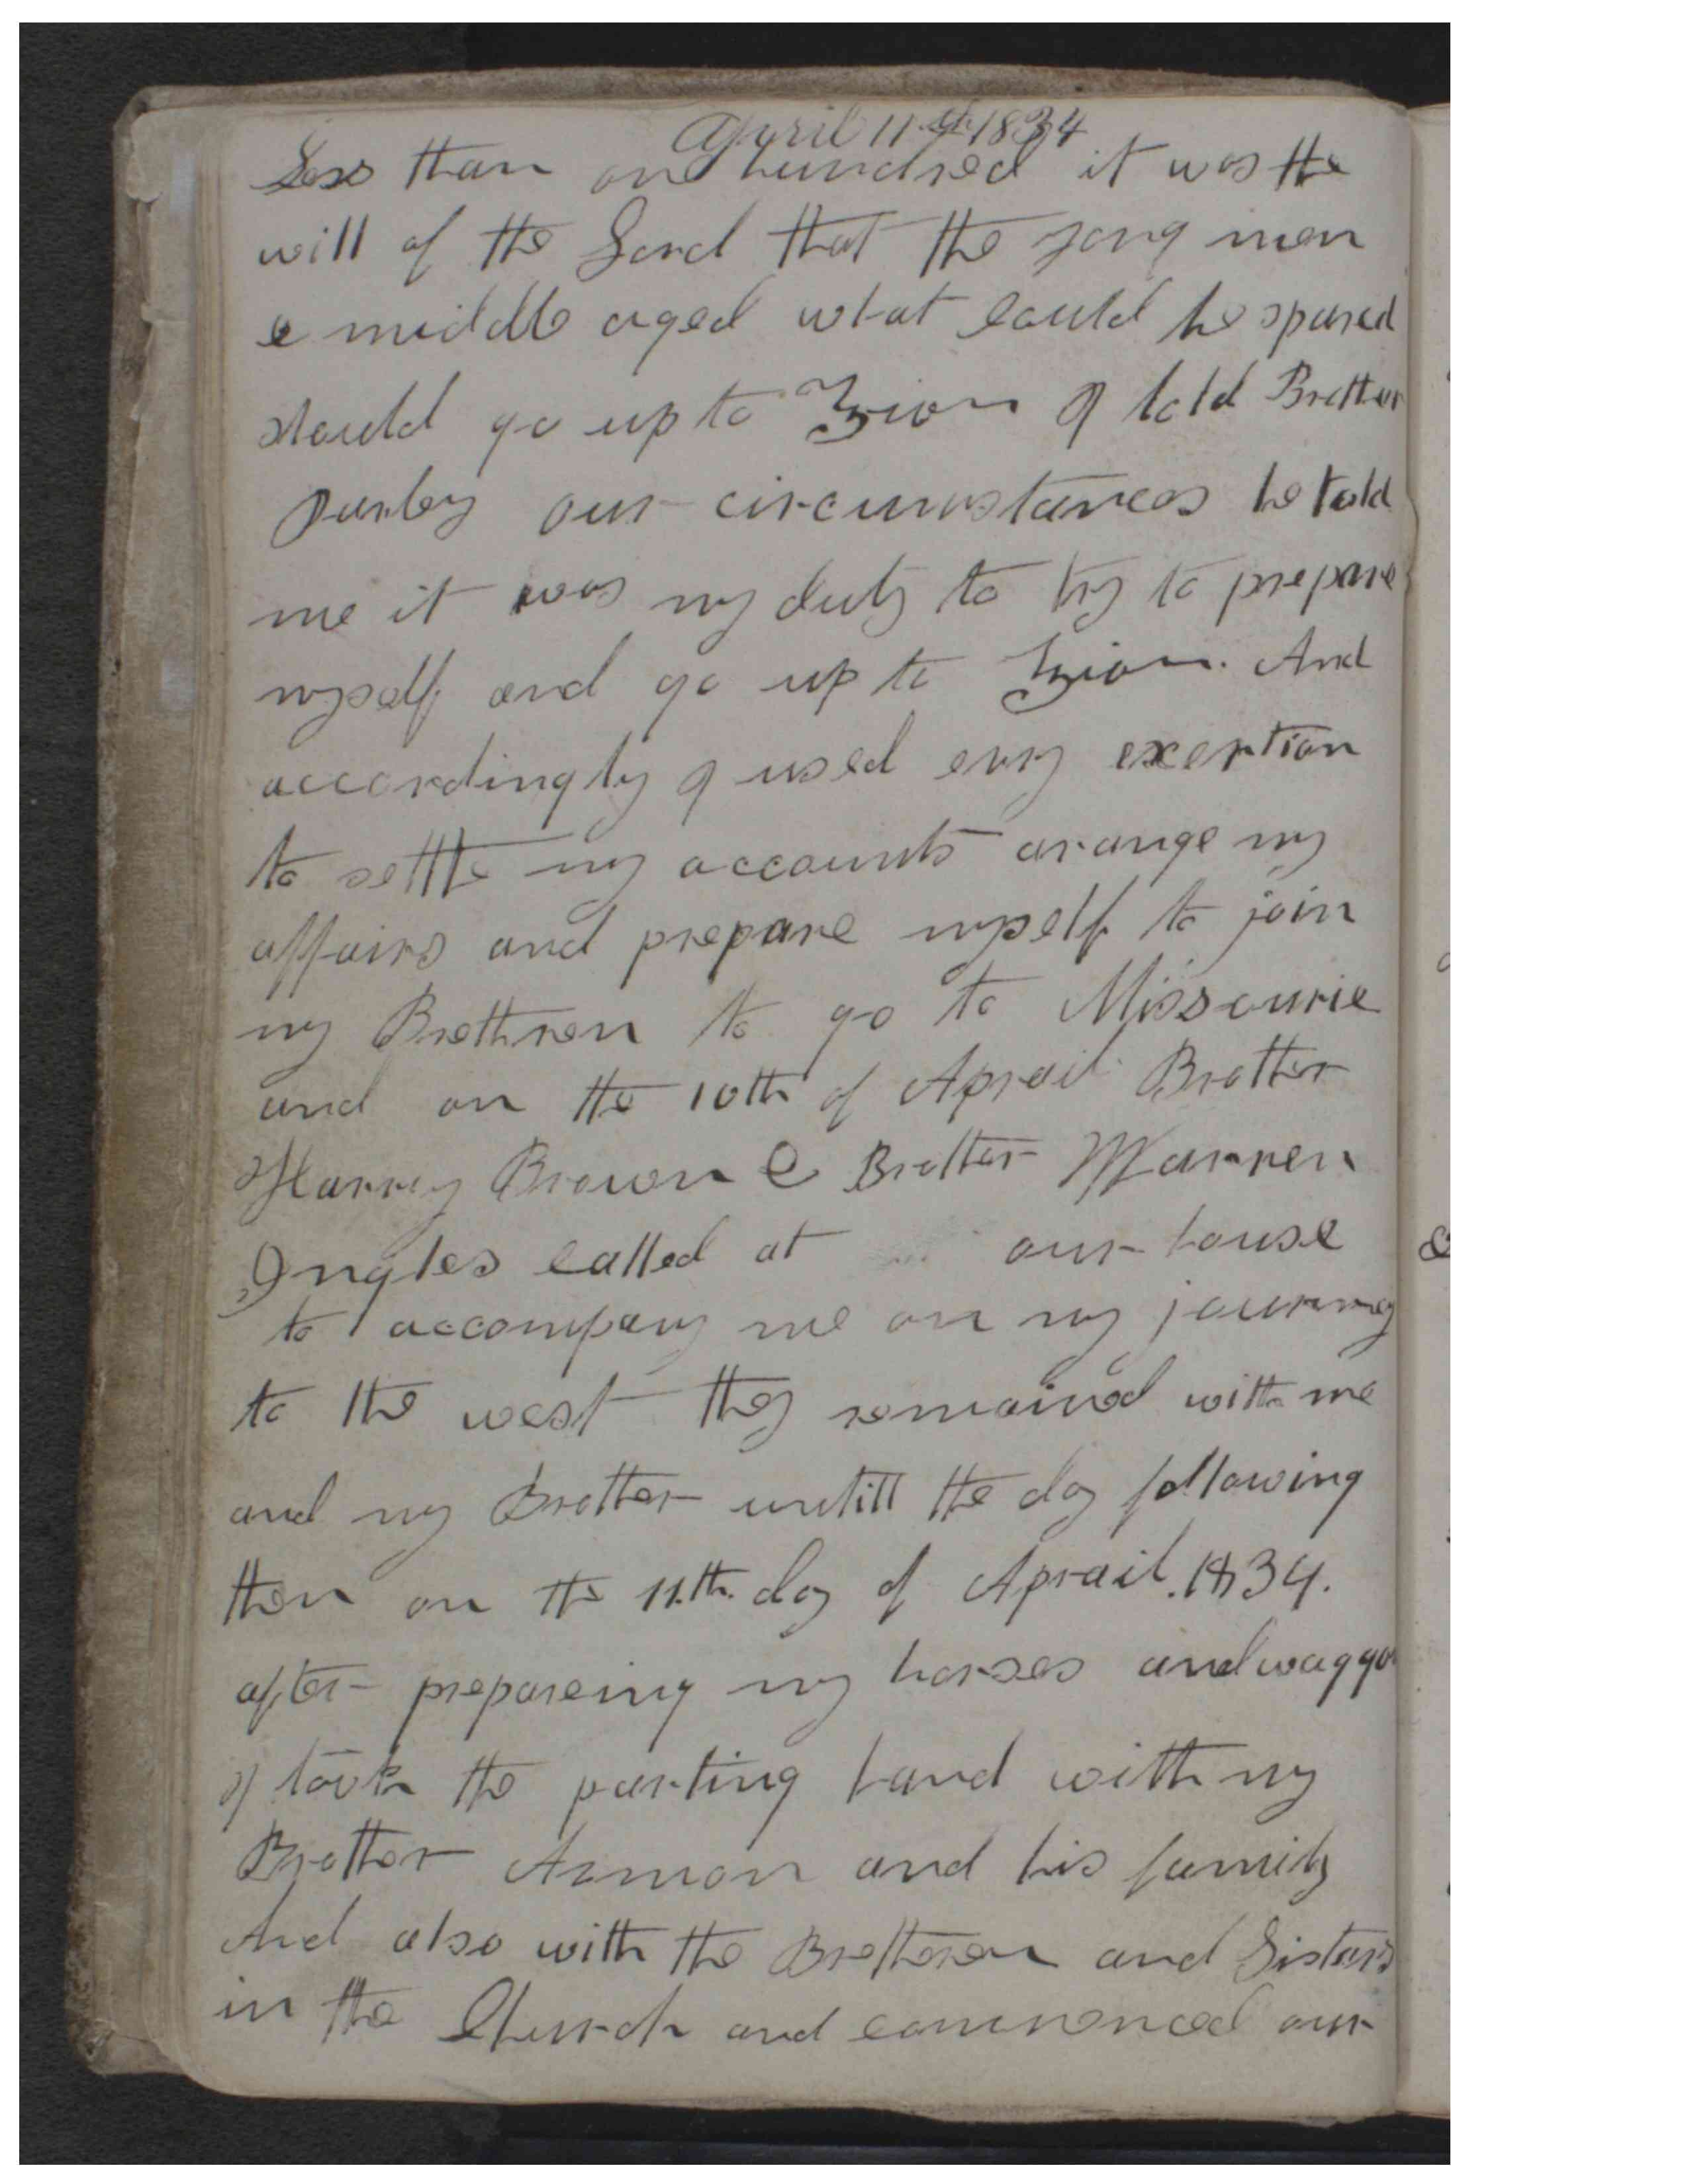 April 11th 1834
Less than one hundred it was the
will of the Lord that the yong men
& middle aged what could be spared
should go up to Zion I told Brother
Parley our circumstances he told
me it was my duty to try to prepare
myself and go up to Zion. And
accordingly I used evry exertion
to settle my accounts arange my
affairs and prepare myself to join
my Brethren to go to Missourie
and on the 10th of Aprail Brother
Harry Brown & Brother Warren
Ingles called at our house
to accompany me on my journey
to the west they remained with me
and my Brother untill the day following
then on the 11.th. day of Aprail. 1834.
after prepareing my horses and waggon
I took the parting hand with my
Brother Azmon and his family
And also with the Bretheren and Sisters
in the Church and commenced our